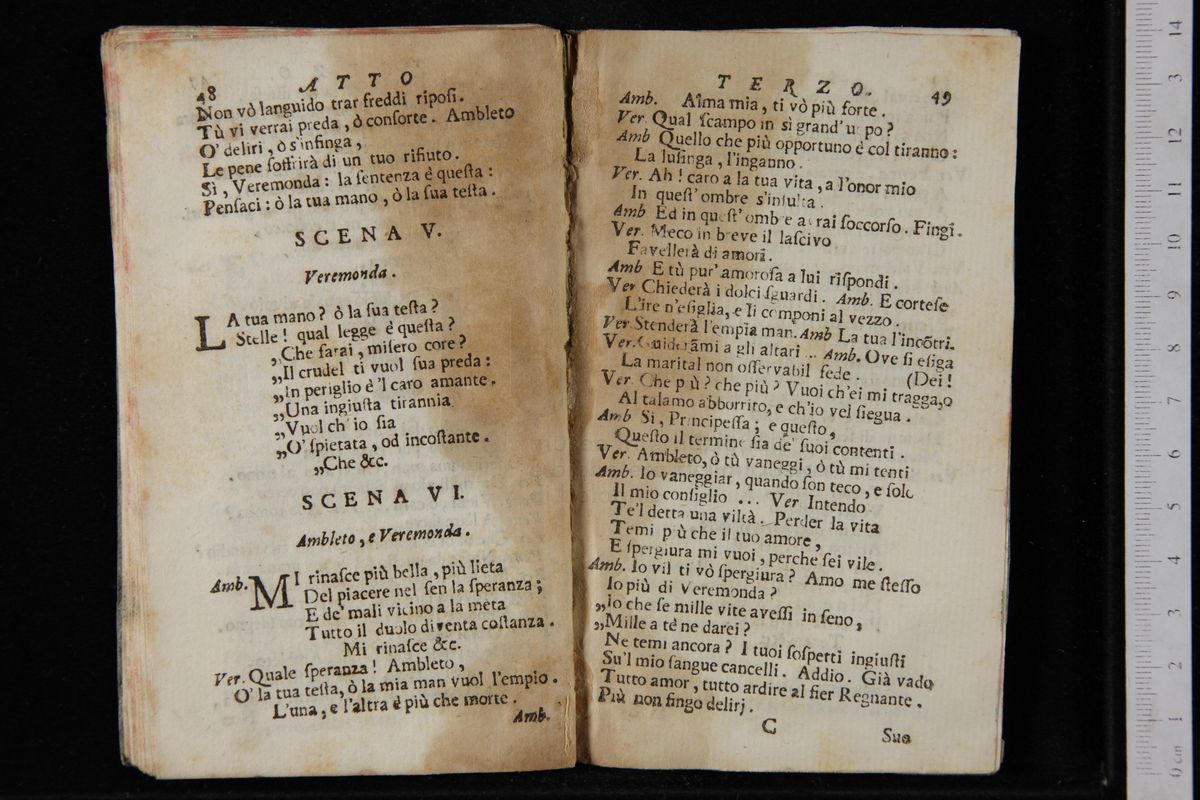 48 ATTO
Non vò languido trar freddi riposi.
Tù vi verrai preda, ò consorte. Ambleto
O' deliri, ò s'infinga,
Le pene soffrirà di un tuo rifiuto.
Sì, Veremonda: la sentenza è questa:
Pensaci: ò la tua mano, ò la sua testa.
SCENA V.
Veremonda.
LA tua mano? ò la sua testa?
Stelle! qual legge è questa?
„Che farai, misero core?
„Il crudel ti vuol sua preda:
„In periglio è 'l caro amante.
„Una ingiusta tirannia
„Vuol ch' io sia
„O' spietata, od incostante.
„Che &c.
SCENA VI.
Ambleto, e Veremonda.
Amb. MI rinasce più bella, più lieta
Del piacere nel sen la speranza;
E de' mali vicino a la meta
Tutto il duolo diventa costanza.
Mi rinasce &c.
Ver. Quale speranza! Ambleto,
O' la tua testa, ò la mia man vuol l'empio.
L'una, e l'altra è più che morte.
Amb.
TERZO. 49
Amb. Alma mia, ti vò più forte.
Ver. Qual scampo in sì grand' uopo?
Amb Quello che più opportuno è col tiranno:
La lusinga, l'inganno.
Ver. Ah! caro a la tua vita, a l'onor mio
In quest' ombre s'insulta.
Amb Ed in quest' ombre avrai soccorso. Fingi.
Ver. Meco in breve il lascivo
Favellerà di amori.
Amb E tù pur' amorosa a lui rispondi.
Ver Chiederà i dolci sguardi. Amb. E cortese
L'ire n'esiglia, e li componi al vezzo.
Ver. Stenderà l'empia man. Amb La tua l'incõtri.
Ver. Guiderãmi a gli altari ... Amb. Ove si esiga
La marital non osservabil fede. (Dei!
Ver. Che più? che più? Vuoi ch'ei mi tragga, o
Al talamo abborrito, e ch'io vel siegua.
Amb Sì, Principessa; e questo,
Questo il termine sia de' suoi contenti.
Ver. Ambleto, ò tù vaneggi, ò tù mi tenti
Amb. Io vaneggiar, quando son teco, e solo
Il mio consiglio ... Ver Intendo
Te'l detta una viltà. Perder la vita
Temi più che il tuo amore,
E spergiura mi vuoi, perche sei vile.
Amb. Io vil ti vò spergiura? Amo me stesso
Io più di Veremonda?
„Io che se mille vite avessi in seno,
„Mille a tè ne darei?
Ne temi ancora? I tuoi sospetti ingiusti
Su'l mio sangue cancelli. Addio. Già vado
Tutto amor, tutto ardire al fier Regnante.
Più non fingo delirj.
C Suo